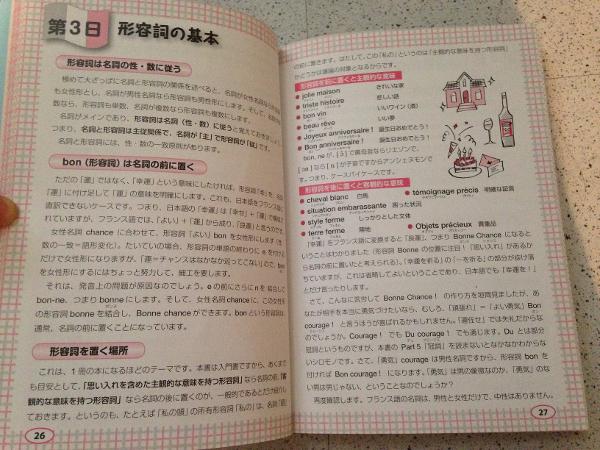 第3日 形容詞の基本
形容詞は名詞の性・数に従う
極めて大ざっぱに名詞と形容詞の関係を述べると、名詞が女性名詞なら形容詞
も女性形とし、名詞が男性名詞なら形容詞も男性形にします。そして、名詞が単
数なら、形容詞も単数、名詞が複数なら形容詞も複数にします。
名詞がメインであり、形容詞は名詞（性・数）に従うと覚えておきましょう。
つまり、名詞と形容詞は主従関係で、名詞が「主」で形容詞が「従」です。
名詞と形容詞には、性・数の一致の原則があります。
bon（形容詞）は名詞の前に置く
ただの「運」ではなく、「幸運」という意味にしたければ、形容詞「幸」を、名詞
「運」に付け足して「運」の意味を明確にします。これも、日本語をフランス語に
直訳できないケースです。つまり、日本語の「幸運」は「幸せ」＋「運」で構成さ
れていますが、フランス語では、「よい」＋「運」から成り、「良運」と言うのです。
女性名詞 chance に合わせて、形容詞「よい」bon を女性形にします（性・
数の一致＝語形変化）。たいていの場合、形容詞の単語の終わりに e を付ける
だけで女性形になりますが、「運＝チャンスはなかなか巡ってこない」ので、bon
を女性形にするにはちょっと努力して、細工を要します。
それは、発音上の問題が原因なのでしょう。e の前にさらに n を結合して
bon-ne、つまり bonne にします。そして、女性名詞 chance に、この女性形
の形容詞 bonne を結合し、Bonne chance ができます。bon という形容詞は、
通常、名詞の前に置くことになっています。
形容詞を置く場所
これは、1冊の本になるほどのテーマです。本書は入門書ですから、あくまで
も目安として、「思い入れを含めた主観的な意味を持つ形容詞」なら名詞の前、「客
観的な意味を持つ形容詞」なら名詞の後に置くのが、一般的であるとだけ紹介し
ておきます。というのも、たとえば「私の頭」の所有形容詞「私の」は、名詞「頭」
26
の前に置きます。はたして、この「私の」というのは「主観的な意味を持つ形容詞」
かどうかは議論の対象となるからです。
形容詞を前に置くと主観的な意味
● jolie maison きれいな家
● triste histoire 悲しい話
● bon vin いいワイン（酒）
● beau rêve いい夢
● Joyeux anniversaire ! 誕生日おめでとう！
● Bon anniversaire ! 誕生日おめでとう！
つまり、ケースバイケースです。
形容詞を後に置くと客観的な意味
● cheval blanc 白馬
● témoignage précis 明確な証言
● situation embarassante 困った状況
● style ferme しっかりとした文体
● terre ferme 陸地
● Objets précieux 貴重品
「幸運」をフランス語に変換すると「良運」、つまり Bonne Chance になると
いうことはわかりました（形容詞 Bonne の位置に注目！「思い入れ」があるか
ら名詞の前に置いたと考えられる）。「幸運を祈る」の「〜を祈る」の部分が抜け落
ちていますが、これは省略してよいということであり、日本語でも「幸運を！」
とだけ言ったりします。
さて、こんなに苦労して Bonne Chance ! の作り方を垣間見ましたが、あ
なたが相手を本当に勇気づけたいなら、むしろ、「頑張れ」＝「よい勇気」Bon
courage ! と言うほうが喜ばれるかもしれません。「運任せ」では失礼だからな
のでしょうか。Courage ! でも Du courage ! でも通じます。Du とは部分
冠詞というものですが、本書の Part 5「冠詞」を読まないとなかなかわからな
いシロモノです。さて、「勇気」courage は男性名詞ですから、形容詞 bon を
付ければ Bon courage ! になります。「勇気」は男の象徴なのか、「勇気」のな
い男は男じゃない、ということなのでしょうか？
再度確認します。フランス語の名詞は、男性と女性だけで、中性はありません。
27